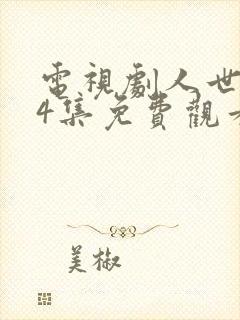 電視劇人世
4集免費觀
美椒